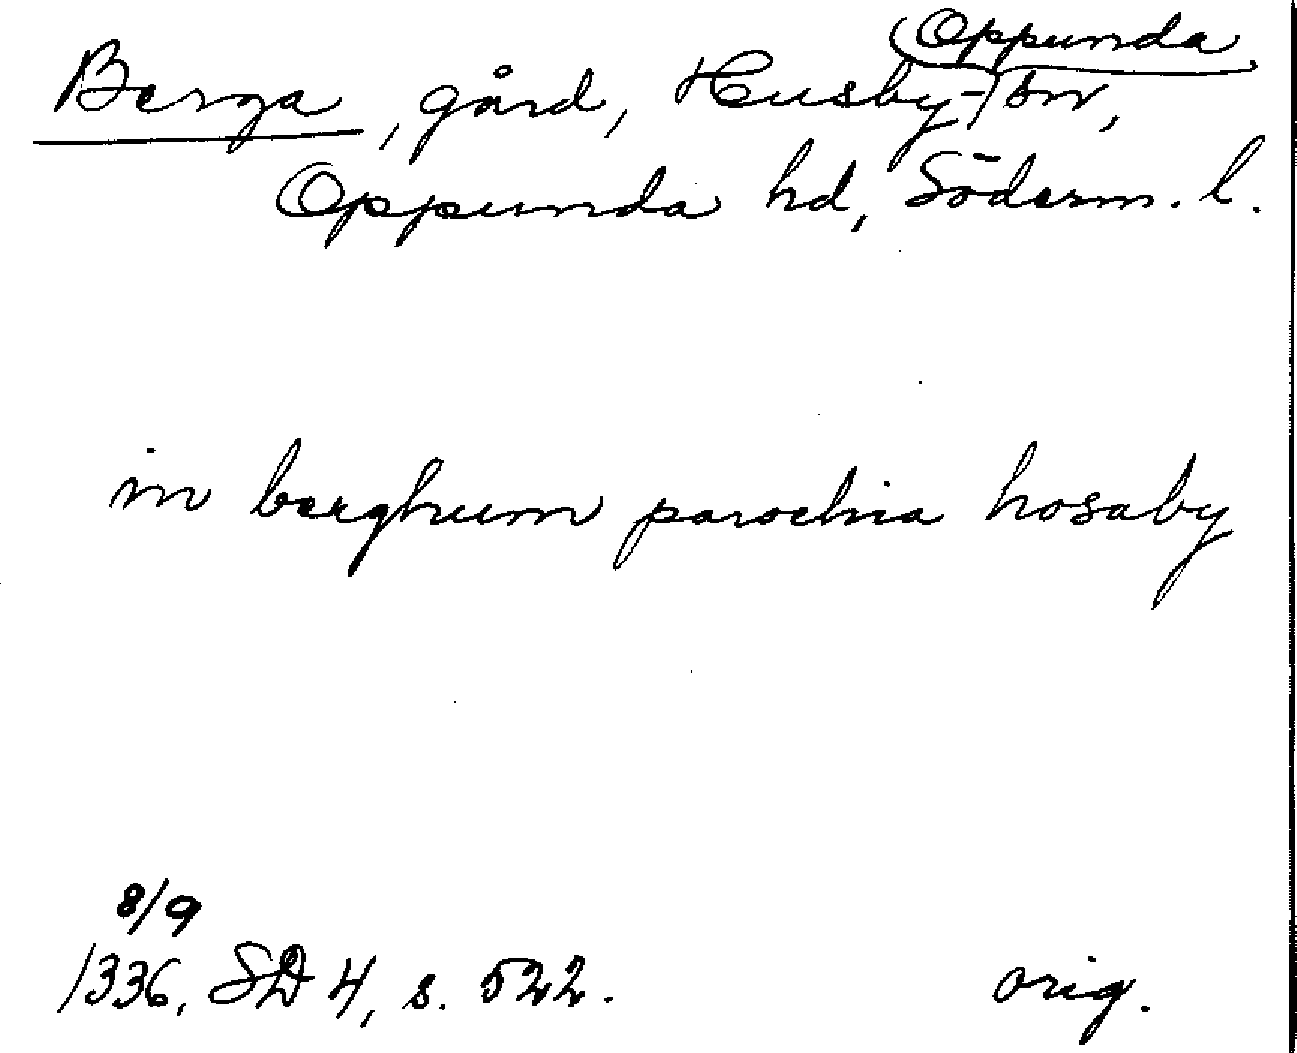 Oppunda
Berga, gård, Husby- sn,
Oppunda hd, Söderm. l.
in berghum parochia hosaby
8/9
1336, SD 4, s. 522. orig.